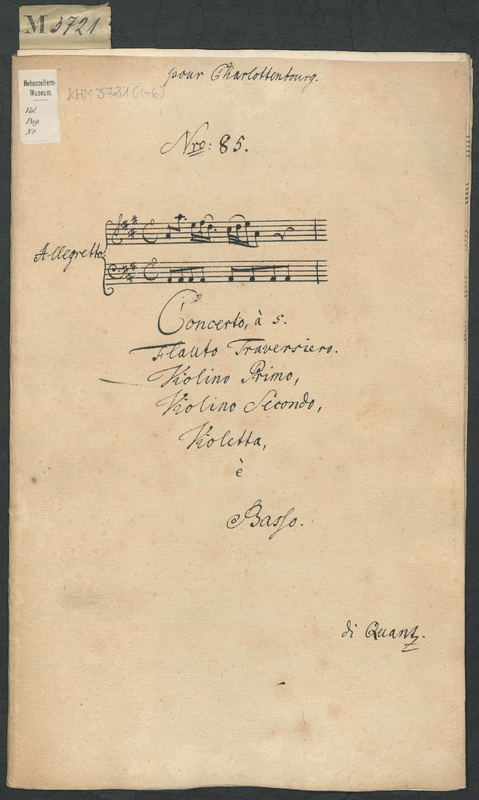 M 3721
pour Charlottenbourg.
Hohenzollern-
Museum.
Vol.
Pag.
Nr.
KHM 3721 (1-6)
Nro: 85.
Allegretto.
Concerto, à 5.
Flauto Traversiero.
Violino Primo,
Violino Secondo,
Violetta,
è
Basso.
di Quantz.